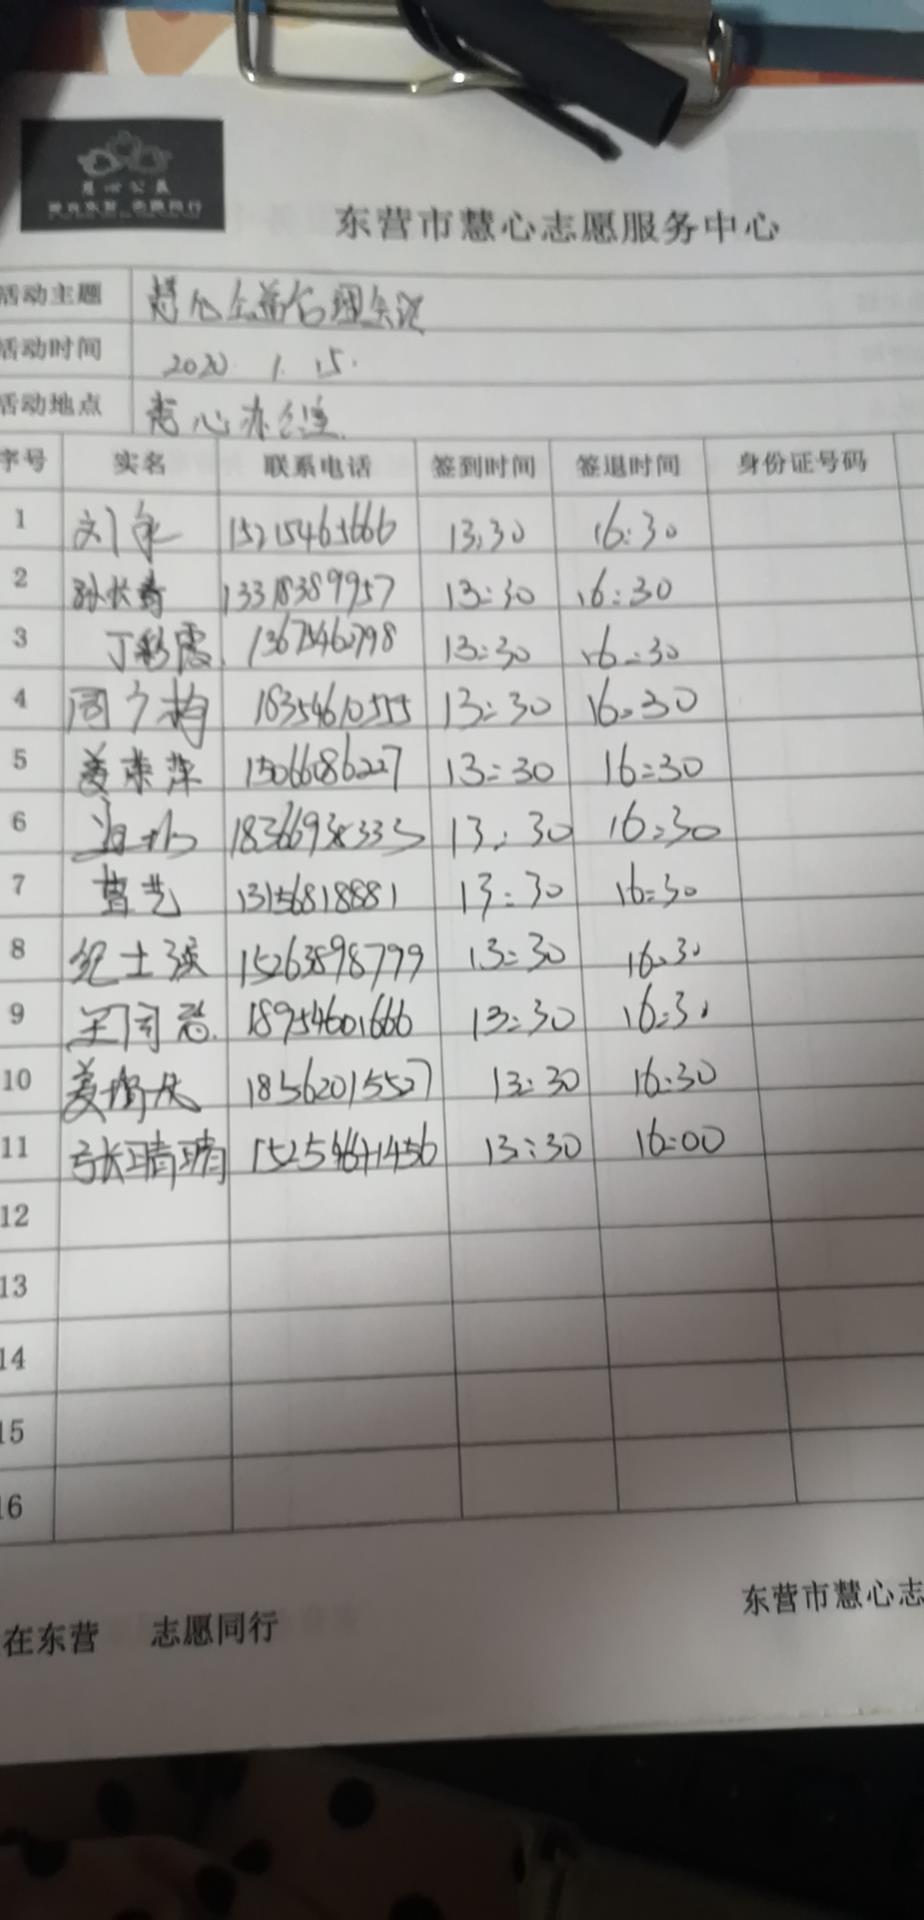 慧心公益
爱在东营 志愿同行
东营市慧心志愿服务中心
活动主题 慧心公益管理会议
活动时间 2020.1.15.
活动地点 慧心办公室
序号 实名 联系电话 签到时间 签退时间 身份证号码
1 刘 15215465666 13:30 16:30
2 孙长青 13318389957 13:30 16:30
3 丁彩霞 13675460798 13:30 16:30
4 18354610555 13:30 16:30
5 姜荣萍 15066086227 13:30 16:30
6 13:30 16:30
7 曹艺 13156818881 13:30 16:30
8 纪士 15263898799 13:30 16:30
9 18954601666 13:30 16:30
10 姜 18562015527 13:30 16:30
11 张晴晴 13:30 16:00
12
13
14
15
16
在东营 志愿同行
东营市慧心志